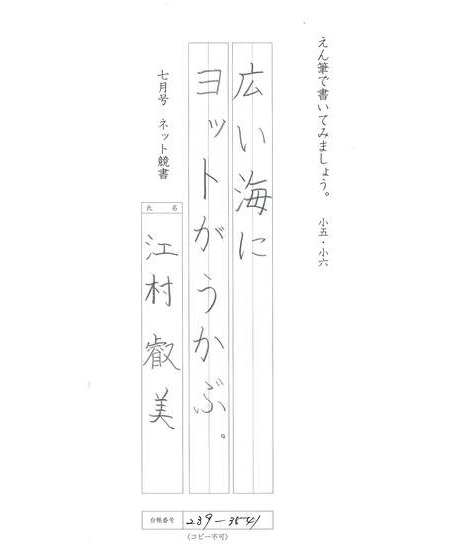 えん筆で書いてみましょう。 小五・小六
広い海に
ヨットがうかぶ。
七月号 ネット競書
氏 名
江村 叡美
台帳番号 239-3541
(コピー不可)